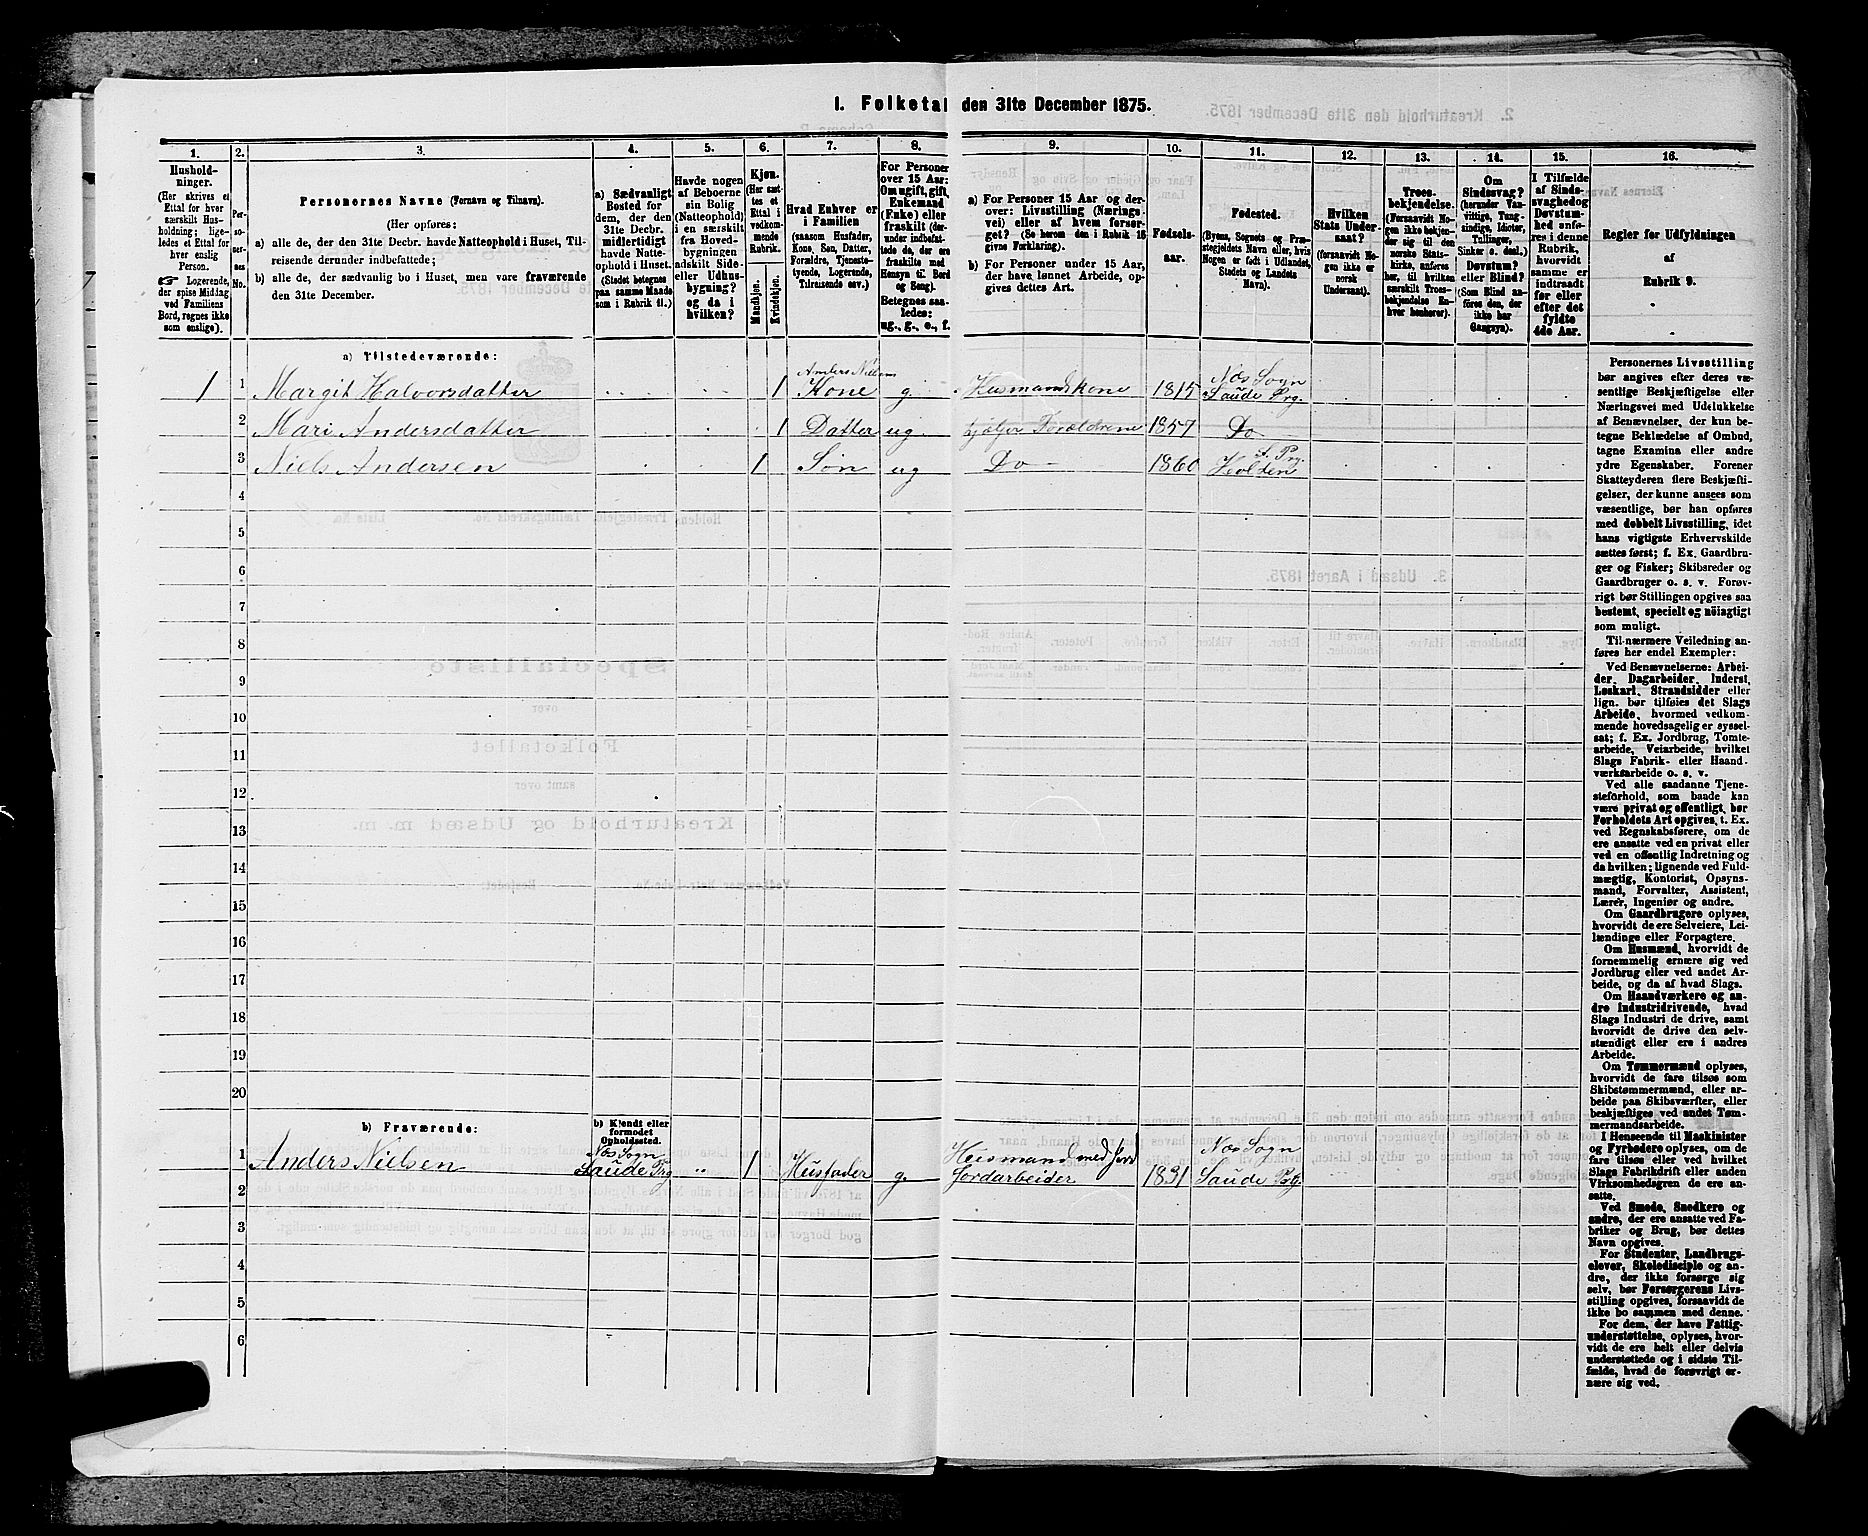 I. Folketal den 31te December 1875.
1.
2.
3.
4.
5.
6.
7.
8.
9.
10.
11.
12.
13.
14.
15.
16.
Hushold-
ninger.
(Her skrives et
Ettal for hver
særskilt Hus-
holdning; lige-
ledes et Ettal for
hver enslig
Person.
☞ Logerende,
der spise Middag
ved Familiens
Bord, regnes ikke
som enslige).
Per-
so-
ner-
nes
No.
Personernes Navne (Fornavn og Tilnavn).
(Her opføres:
a) alle de, der den 31te Decbr. havde Natteophold i Huset, Til-
reisende derunder indbefattede;
b) alle de, der sædvanlig bo i Huset, men vare fraværende
den 31te December.
a) Sædvanligt
Bosted for
dem, der den
31te Decbr.
midlertidigt
havde Natte-
ophold i Huset.
(Stedet betegnes
paa samme Maade
som i Rubrik 11.)
Havde nogen
af Beboerne
sin Bolig
(Natteophold)
i en særskilt
fra Hoved-
bygningen
adskilt Side-
eller Udhus-
bygning?
og da i
hvilken?
Kjøn.
(Her sæt-
tes et
Ettal i
vedkom-
mende
Rubrik.
Mandkjøn.
Kvindekjøn.
Hvad Enhver er
i Familien
(saasom Husfader,
Kone, Søn, Datter,
Forældre, Tjeneste-
tyende, Logerende,
Tilreisende osv.)
For Personer
over 15 Aar:
Om ugift, gift,
Enkemand
(Enke) eller
fraskilt (der-
under indbefat-
tede de, der ere
fraskilte med
Hensyn til Bord
og Seng).
Betegnes saa-
ledes:
ug., g., e., f.
a) For Personer 15 Aar og der-
over: Livsstilling (Nærings-
vei) eller af hvem forsør-
get? (Se herom den i Rubrik 16
givne Forklaring).
b) For Personer under 15 Aar,
der have lønnet Arbeide, op-
gives dettes Art.
Fødsels-
aar.
Fødested.
(Byens, Sognets og Præ-
stegjeldets Navn eller, hvis
Nogen er født i Udlandet,
Stedets og Landets
Navn).
Hvilken
Stats Under-
saat?
(forsaavidt No-
gen ikke er
norsk
Undersaat).
Troes-
bekjendelse.
(Forsaavidt No-
gen ikke bekjen-
der sig til den
norske Stats-
kirke, anføres
her, til hvilken
særskilt Troes-
bekjendelse En-
hver henhører).
Om
Sindssvag?
(herunder Van-
vittige, Tung-
sindige, Idioter,
Tullinger,
Sinker o. desl.).
Døvstum?
eller Blind?
(Som Blind an-
føres den, der
ikke har
Gangsyn).
I Tilfælde
af Sinds-
svaghed og
Døvstum-
hed anfø-
res i denne
Rubrik,
hvorvidt
samme er
indtraadt
før eller
efter det
fyldte
4de Aar.
Regler for Udfyldningen
af
Rubrik 9.
a) Tilstedeværende:
1 1 Margit Halvorsdatter 1 Anders Nielsens Kone g. Husmandskone 1815 Næs Sogn Saude Prg.
2 Mari Andersdatter 1 Datter ug hjælper Forældrene 1857 Do
3 Niels Andersen 1 Søn ug Do 1860 Holden S. Prg.
4
5
6
7
8
9
10
11
12
13
14
15
16
17
18
19
20
b) Fraværende:
b) Kjendt eller
formodet
Opholdssted.
1 Anders Nielsen Næs Sogn Saude Prg " 1 Husfader g. Husmand med Jord Jordarbeider 1831 Næs Sogn Saude Prg.
2
3
4
5
6
Personernes Livsstilling
bør angives efter deres væ-
sentlige Beskjæftigelse eller
Næringsvei med Udelukkelse
af Benævnelser, der kun be-
tegne Beklædelse af Ombud,
tagne Examina eller andre
ydre Egenskaber. Forener
Skatteyderen flere Beskjæfti-
gelser, der kunne ansees som
væsentlige, bør han opføres
med dobbelt Livsstilling, idet
hans vigtigste Erhvervskilde
sættes først; f. Ex. Gaardbru-
ger og Fisker; Skibsreder og
Gaardbruger o. s. v. Forøv-
rigt bør Stillingen opgives saa
bestemt, specielt og nöiagtigt
som muligt.
Til nærmere Veiledning an-
føres her endel Exempler:
Ved Benævnelserne: Arbei-
der, Dagarbeider, Inderst,
Løskarl, Strandsidder eller
lign. bør tilføies det Slags
Arbeide, hvormed vedkom-
mende hovedsagelig er syssel-
sat; f. Ex. Jordbrug, Tomte-
arbeide, Veiarbeide, hvilket
Slags Fabrik- eller Haand-
værksarbeide o. s. v.
Ved alle saadanne Tjene-
steforhold, som baade kan
være privat og offentligt, bør
Forholdets Art opgives, t. Ex.
ved Regnskabsførere, om de
ere ansatte ved en privat eller
ved en offentlig Indretning og
da hvilken; lignende ved Fuld-
mægtig, Kontorist, Opsyns-
mand, Forvalter, Assistent,
Lærer, Ingeniør og andre.
Om Gaardbrugere oplyses,
hvorvidt de ere Selveiere, Lei-
lændinge eller Forpagtere.
Om Husmænd, hvorvidt de
fornemmelig ernære sig ved
Jordbrug eller ved andet Ar-
beide, og da af hvad Slags.
Om Haandværkere og an-
dre Industridrivende, hvad
Slags Industri de drive, samt
hvorvidt de drive den selv-
stændigt eller ere i andres
Arbeide.
Om Tømmermænd oplyses,
hvorvidt de fare tilsøs som
Skibstømmermænd, eller ar-
beide paa Skibsværfter, eller
beskjæftiges ved andet Tøm-
mermandsarbeide.
I Henseende til Maskinister
og Fyrbødere oplyses, om de
fare tilsøs eller ved hvilket
Slags Fabrikdrift eller anden
Virksomhedsgren de ere an-
satte.
Ved Smede, Snedkere og
andre, der ere ansatte ved Fa-
briker og Brug, bør dettes
Navn opgives.
For Studenter, Landbrugs-
elever, Skoledisciple og an-
dre, der ikke forsørge sig
selv, bør Forsørgerens Livs-
stilling opgives, forsaavidt de
ikke bo sammen med denne.
For dem, der have Fattig-
understøttelse, oplyses, hvor-
vidt de ere helt eller delvis
understøttede og i sidste Til-
fælde, hvad de forøvrigt er-
nære sig ved.